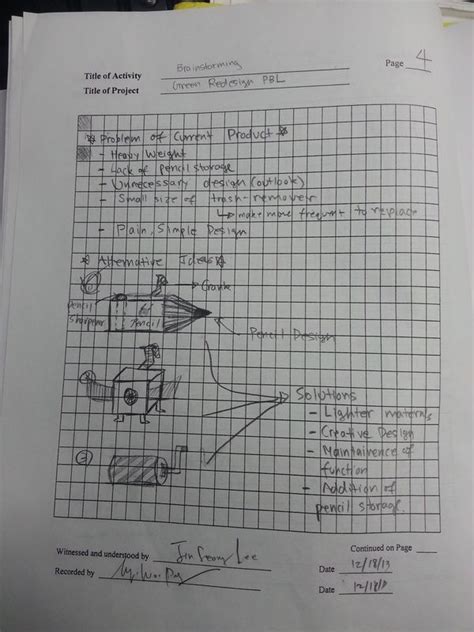 Page 4
Title of Activity Brainstorming
Title of Project Green Redesign PBL
Problem of Current Product
- Heavy Weight
- Lack of pencil storage
- Unnecessary design (outlook)
- Small size of trash-remover
↳ make more frequent to replace
- Plain, Simple Design
Alternative Ideas
Crank
pencil
sharpener
Pencil
Pencil Design
②
Solutions
- Lighter materials
- Creative Design
- Maintainence of
function
③
- Addition of
pencil storage.
Witnessed and understood by Jin Seong Lee
Continued on Page
Recorded by
Date 12/18/13
Date 12/18/